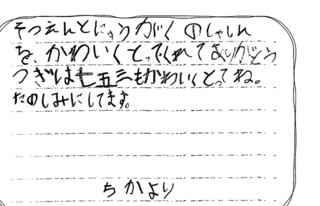 そつえんとにゅうがくのしゃしん
を、かわいくとってくれてありがとう
つぎは七五三もかわいくとってね。
たのしみにしてます。
ちかより